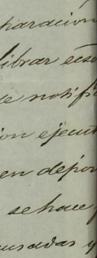 paracion
librar eso
se notifi
ion ejecut
en depor
se hace p
usadas y